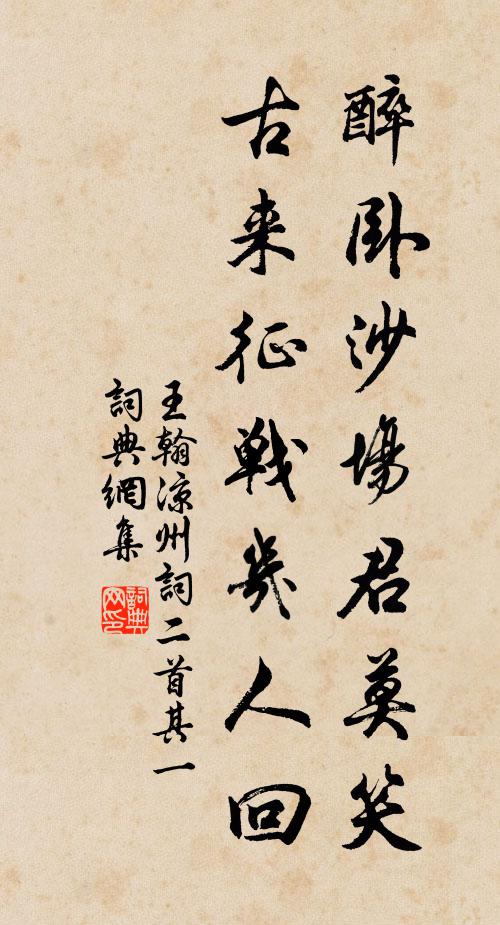 醉卧沙場君莫笑
古来征戰幾人回
王翰涼州詞二首其一
詞典網集
詞典
网印